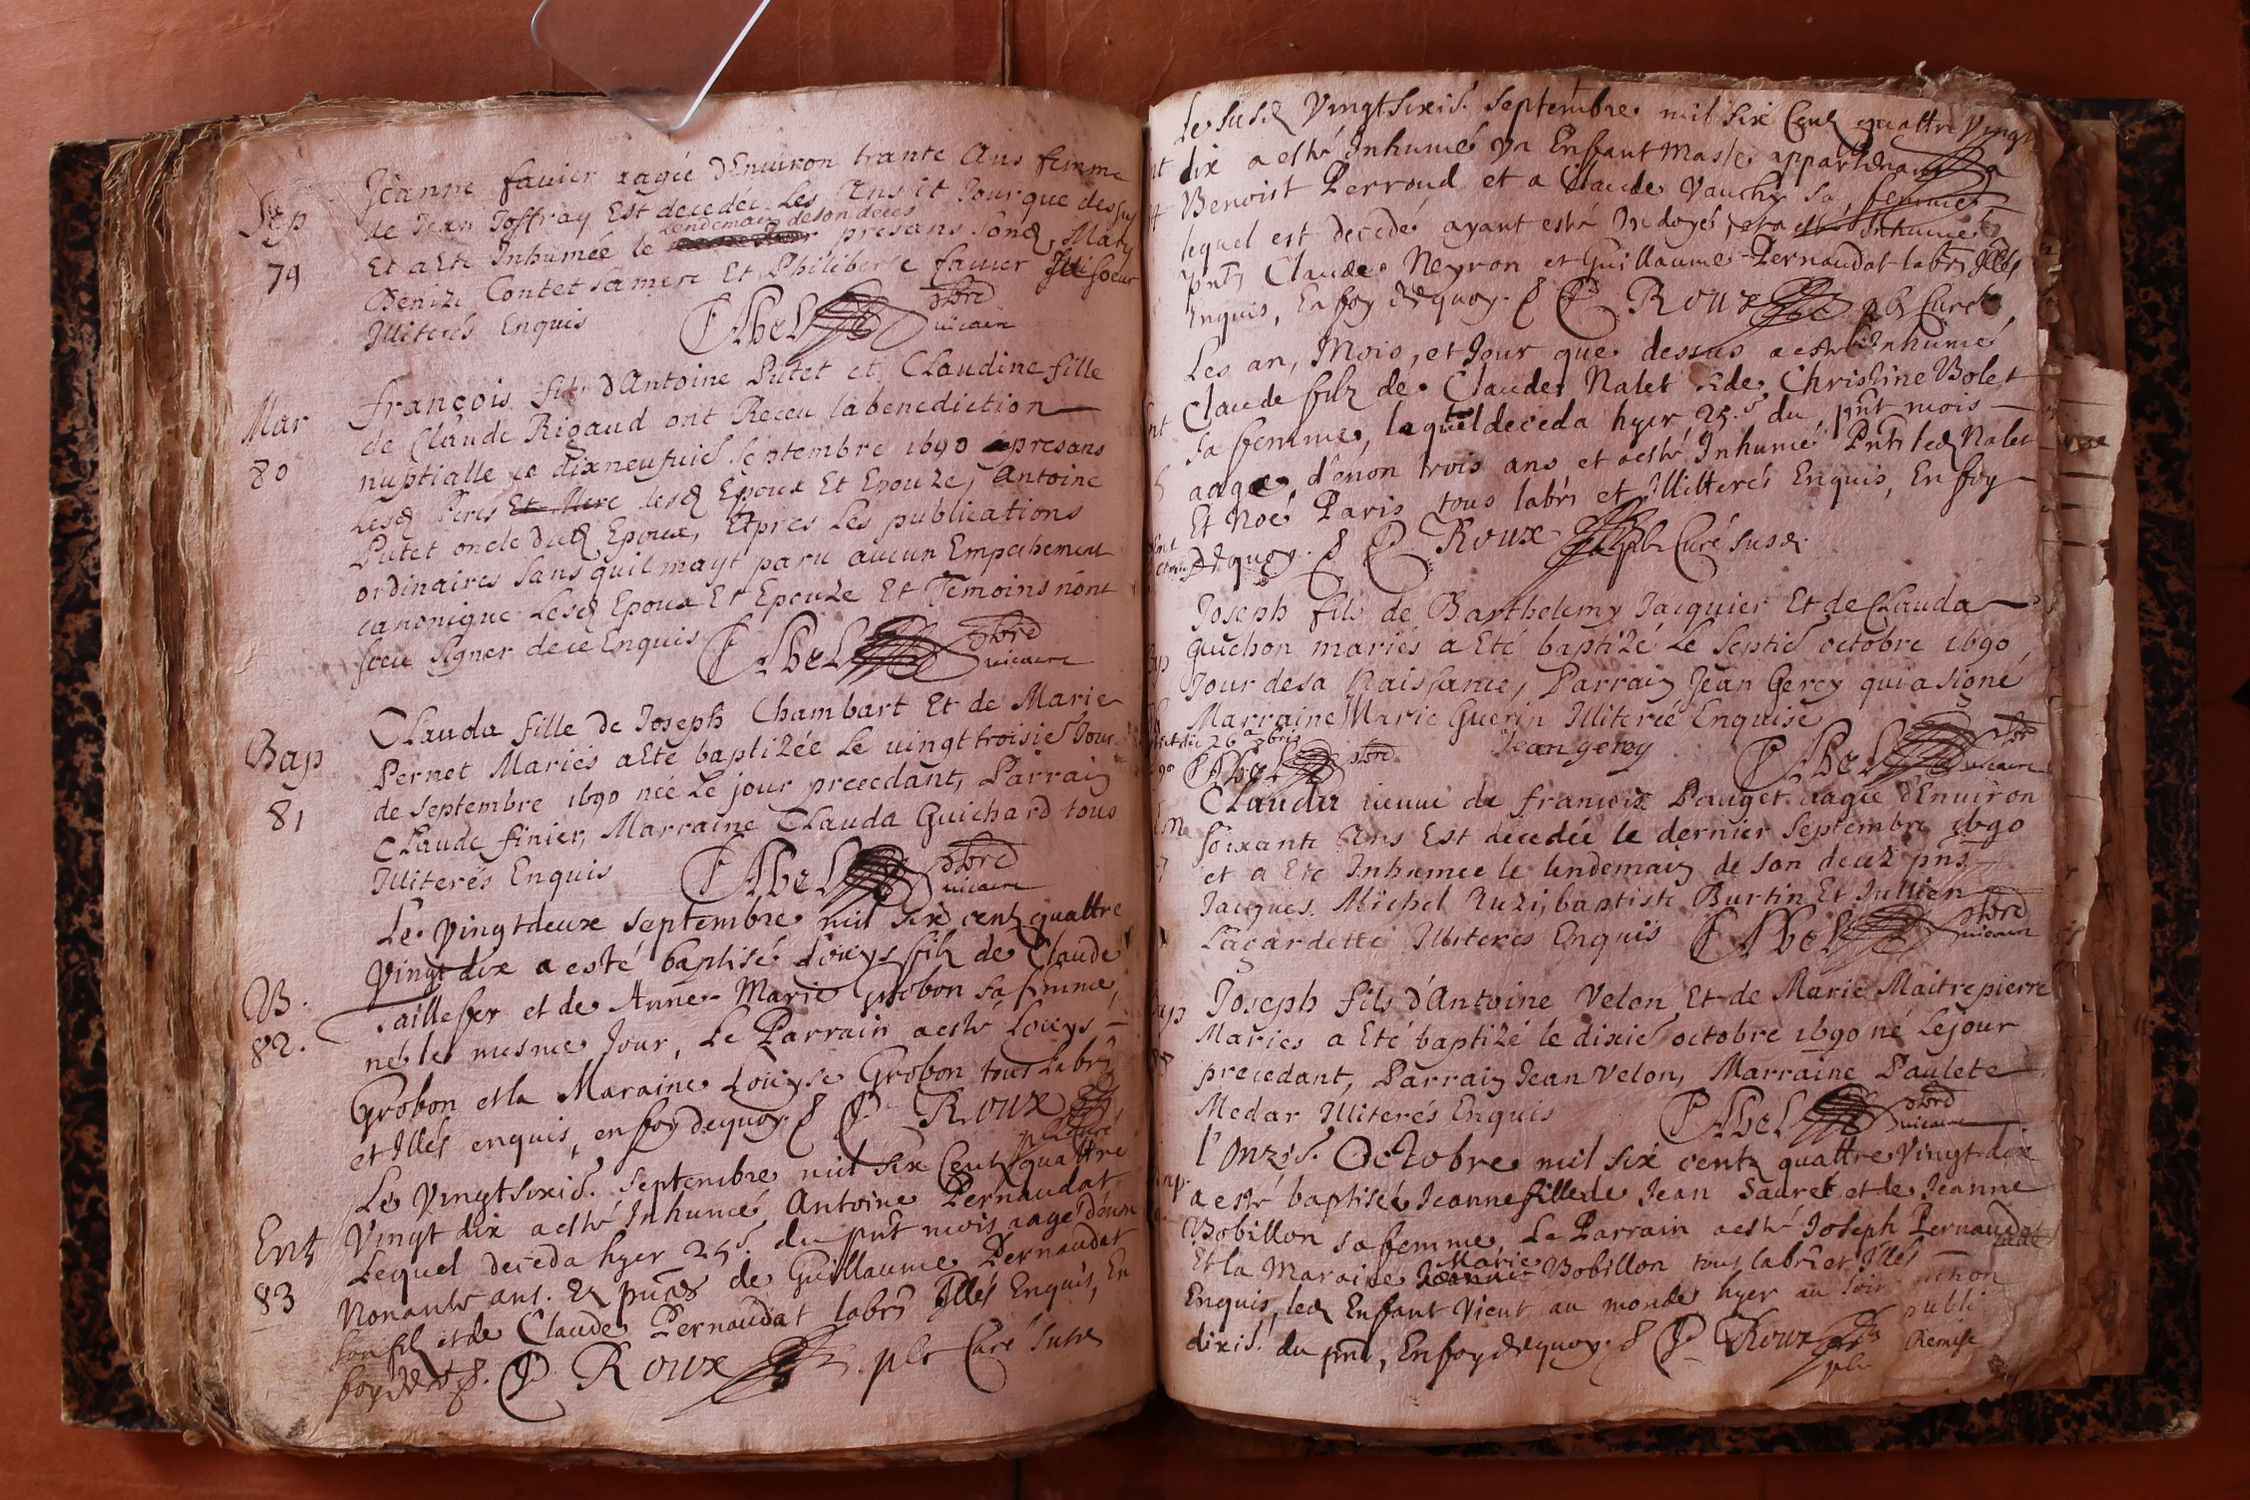 Sep
79
Jeanne favier aagée d'Environ trante Ans femme
de Jean Joffray Est decedée Les Ans et Jour que dessus
lendemain de son decés
Et a Ete Inhumée le presans Mary
Benize Contet sa mere Et Philiberte favier sa soeur
Illiterés Enquis P Abel pbre vicaire
Mar
80
françois fils d'Antoine Putet et Claudine fille
de Claude Rigaud ont Receu la benediction
nuptialle ce dixneufuie septembre 1690 presans
lesd Peres Et Mere lesd Epoux Et Epouze, Antoine
Putet oncle dud Epoux, Et pres Les publications
ordinaires sans quil mayt paru aucun Empechement
canonique Lesd Epoux Et Epouze Et Temoins n'ont
sceu signer de ce Enquis P Abel pbre vicaire
Bap
81
Clauda fille de Joseph Chambart Et de Marie
Pernet Mariés a Ete baptizée Le uingt troisie Jour
de septembre 1690 née Le jour precedant, Parrain
Claude finier, Marraine Clauda Guichard tous
Illiterés Enquis P Abel pbre vicaire
B.
82.
Le vingt deux septembre mil six cent quattre
Vingt dix a esté baptisé Loüys filz de Claude
Taillefer et de Anne-Marie Grobon sa femme,
né le mesme Jour, Le Parrain a esté Loüys
Grobon et la Maraine Loüyse Grobon tous labrs
et Illés enquis, en foy dequoy. P Roux
pbr Curé
Ent
83
Le Vingt sixie. septembre mil six Cent quattre
Vingt dix a esté Inhumé Antoine Pernaudat
Lequel deceda hyer 25e. du pnt mois aagé d'eun
Nonante ans. Es pnces de Guillaume Pernaudat
son filz et de Claude Pernaudat labrs Illés Enquis, En
foy P Roux pbr Curé susd
Le susd Vingt sixie. septembre mil six Cent quattre Vingt
dix a esté Inhumé Vn Enfant Masle appartenant a
Benoist Perroud et a Claude Vauchy sa femme
lequel est decedé ayant esté Ondoyé, et a esté Inhumé
pnts Claude Neyron et Guillaume Pernaudat labrs Illés
Enquis, En foy dequoy. P Roux pbr Curé
Les an, Mois, et Jour que dessus a esté Inhumé
Claude filz de Claude Nalet et de Christine Bolet
sa femme, lequel deceda hyer 25.e du pnt mois
aagé d'enon trois ans et a esté Inhumé Pnts led Nalet
Et Noé Paris tous labrs et Illitterés Enquis, En foy
dequoy. P Roux pbr Curé susd.
Joseph fils de Barthelemy Jacquier Et de Clauda
Guichon mariés a Eté baptizé Le septie octobre 1690
Jour de sa Naissance, Parrain Jean Gercy qui a signé
Marraine Marie Guerin Illiterée Enquise
Jean gercy P Abel pbre vicaire
P Abel pbre
Clauda ueuue de françois Pouget aagée d'Enuiron
soixante Ans Est decedée le dernier septembre 1690
et a Ete Inhumée le lendemain de son decéz pns
Jacques Michel Ruzi, baptiste Burtin Et Jullien
Lacardette Illiterés Enquis P Abel pbre vicaire
Joseph fils d'Antoine Velon Et de Marie Maitrepierre
Mariés a Eté baptizé le dixie octobre 1690 né Le jour
precedant, Parrain Jean Velon, Marraine Paulete
Medar Illiterés Enquis P Abel pbre vicaire
l'Onzie. Octobre mil six cent quattre Vingt dix
a esté baptisée Jeanne fille de Jean Sauret et de Jeanne
Bobillon sa femme, Le Parrain a esté Joseph Pernaudat
Marie
Et la Maraine Jeanne Bobillon tous labrs et Illés
Enquis, led Enfant Vient au monde hyer au soir
dixie. du pnt, En foy dequoy. P Roux
pbr